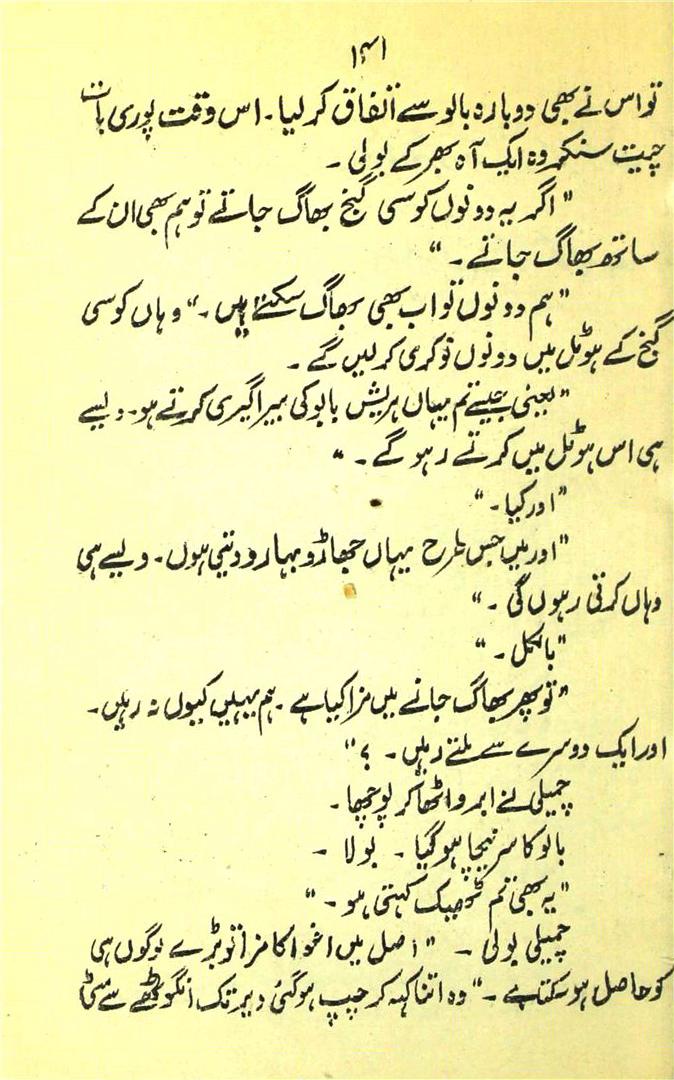 ۱۴۱
تو اس نے بھی دوبارہ بالو سے اتفاق کر لیا۔ اس وقت پوری بات
چیت سنکر وہ ایک آہ بھر کے بولی ۔
"اگر یہ دونوں کوسی گنج بھاگ جاتے تو ہم بھی ان کے
ساتھ بھاگ جاتے ۔"
"ہم دونوں تو اب بھی بھاگ سکتے ہیں ۔" وہاں کوسی
گنج کے ہوٹل میں دونوں نوکری کر لیں گے ۔
"یعنی جیسے تم یہاں ہریش بابو کی بیرا گیری کرتے ہو۔ ویسے
ہی اس ہوٹل میں کرتے رہو گے ۔"
"اور کیا ۔"
"اور میں جس طرح یہاں جھاڑو بہارو دیتی ہوں ۔ ویسے ہی
وہاں کرتی رہوں گی ۔"
"بالکل ۔"
"تو پھر بھاگ جانے میں مزا کیا ہے ۔ ہم یہیں کیوں نہ رہیں ۔
اور ایک دوسرے سے ملتے رہیں ۔ ؟"
چمیلی نے ابرو اٹھا کر پوچھا ۔
بالو کا سر نیچا ہو گیا ۔ بولا ۔
"یہ بھی تم ٹھیک کہتی ہو ۔"
چمیلی بولی ۔ "اصل میں اغوا کا مزا تو بڑے لوگوں ہی
کو حاصل ہو سکتا ہے ۔" وہ اتنا کہہ کر چپ ہو گئی دیر تک انگوٹھے سے مٹی